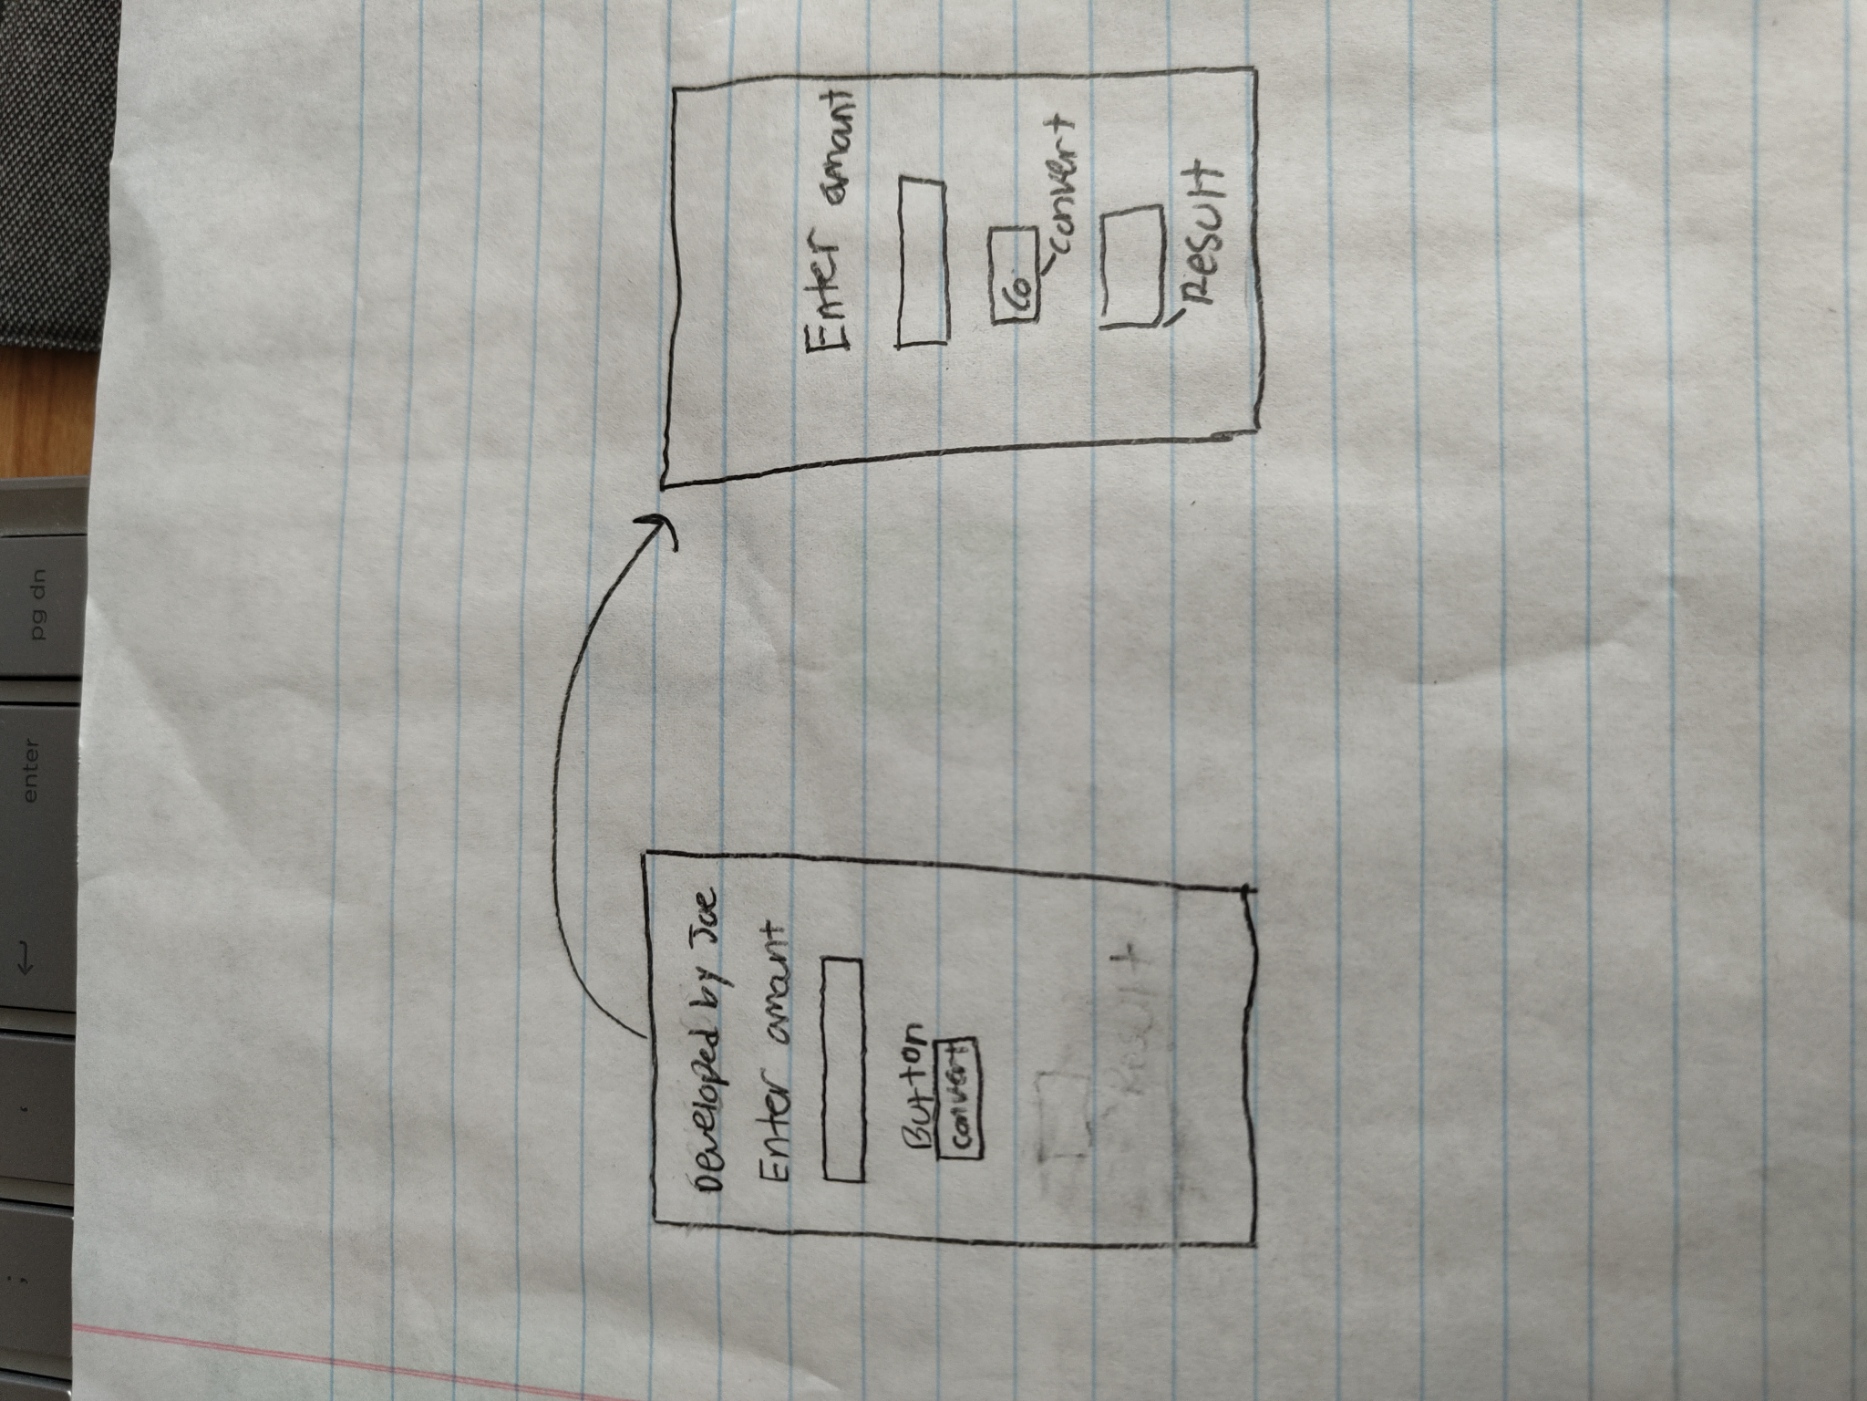 ;
‘
enter
pg dn
Developed by Joe
Enter amant
Button
convert
Enter amant
Co
convert
Result